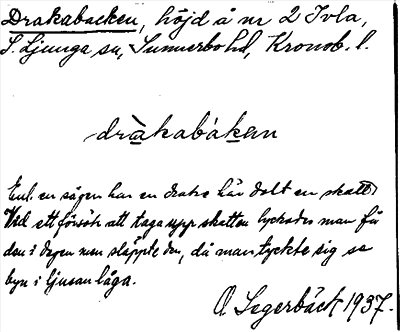 Drakabacken, höjd å nr 2 Tvla,
S. Ljunga sn, Sunnerbo hd, Kronob. l.
drákabákan
Enl. en sägen har en drake här dolt en skatt.
Vid ett försök att taga upp skatten lyckades man få
den i dagen men släppte den, då man tyckte sig se
byn i ljusan låga.
O. Segerbäck 1937.